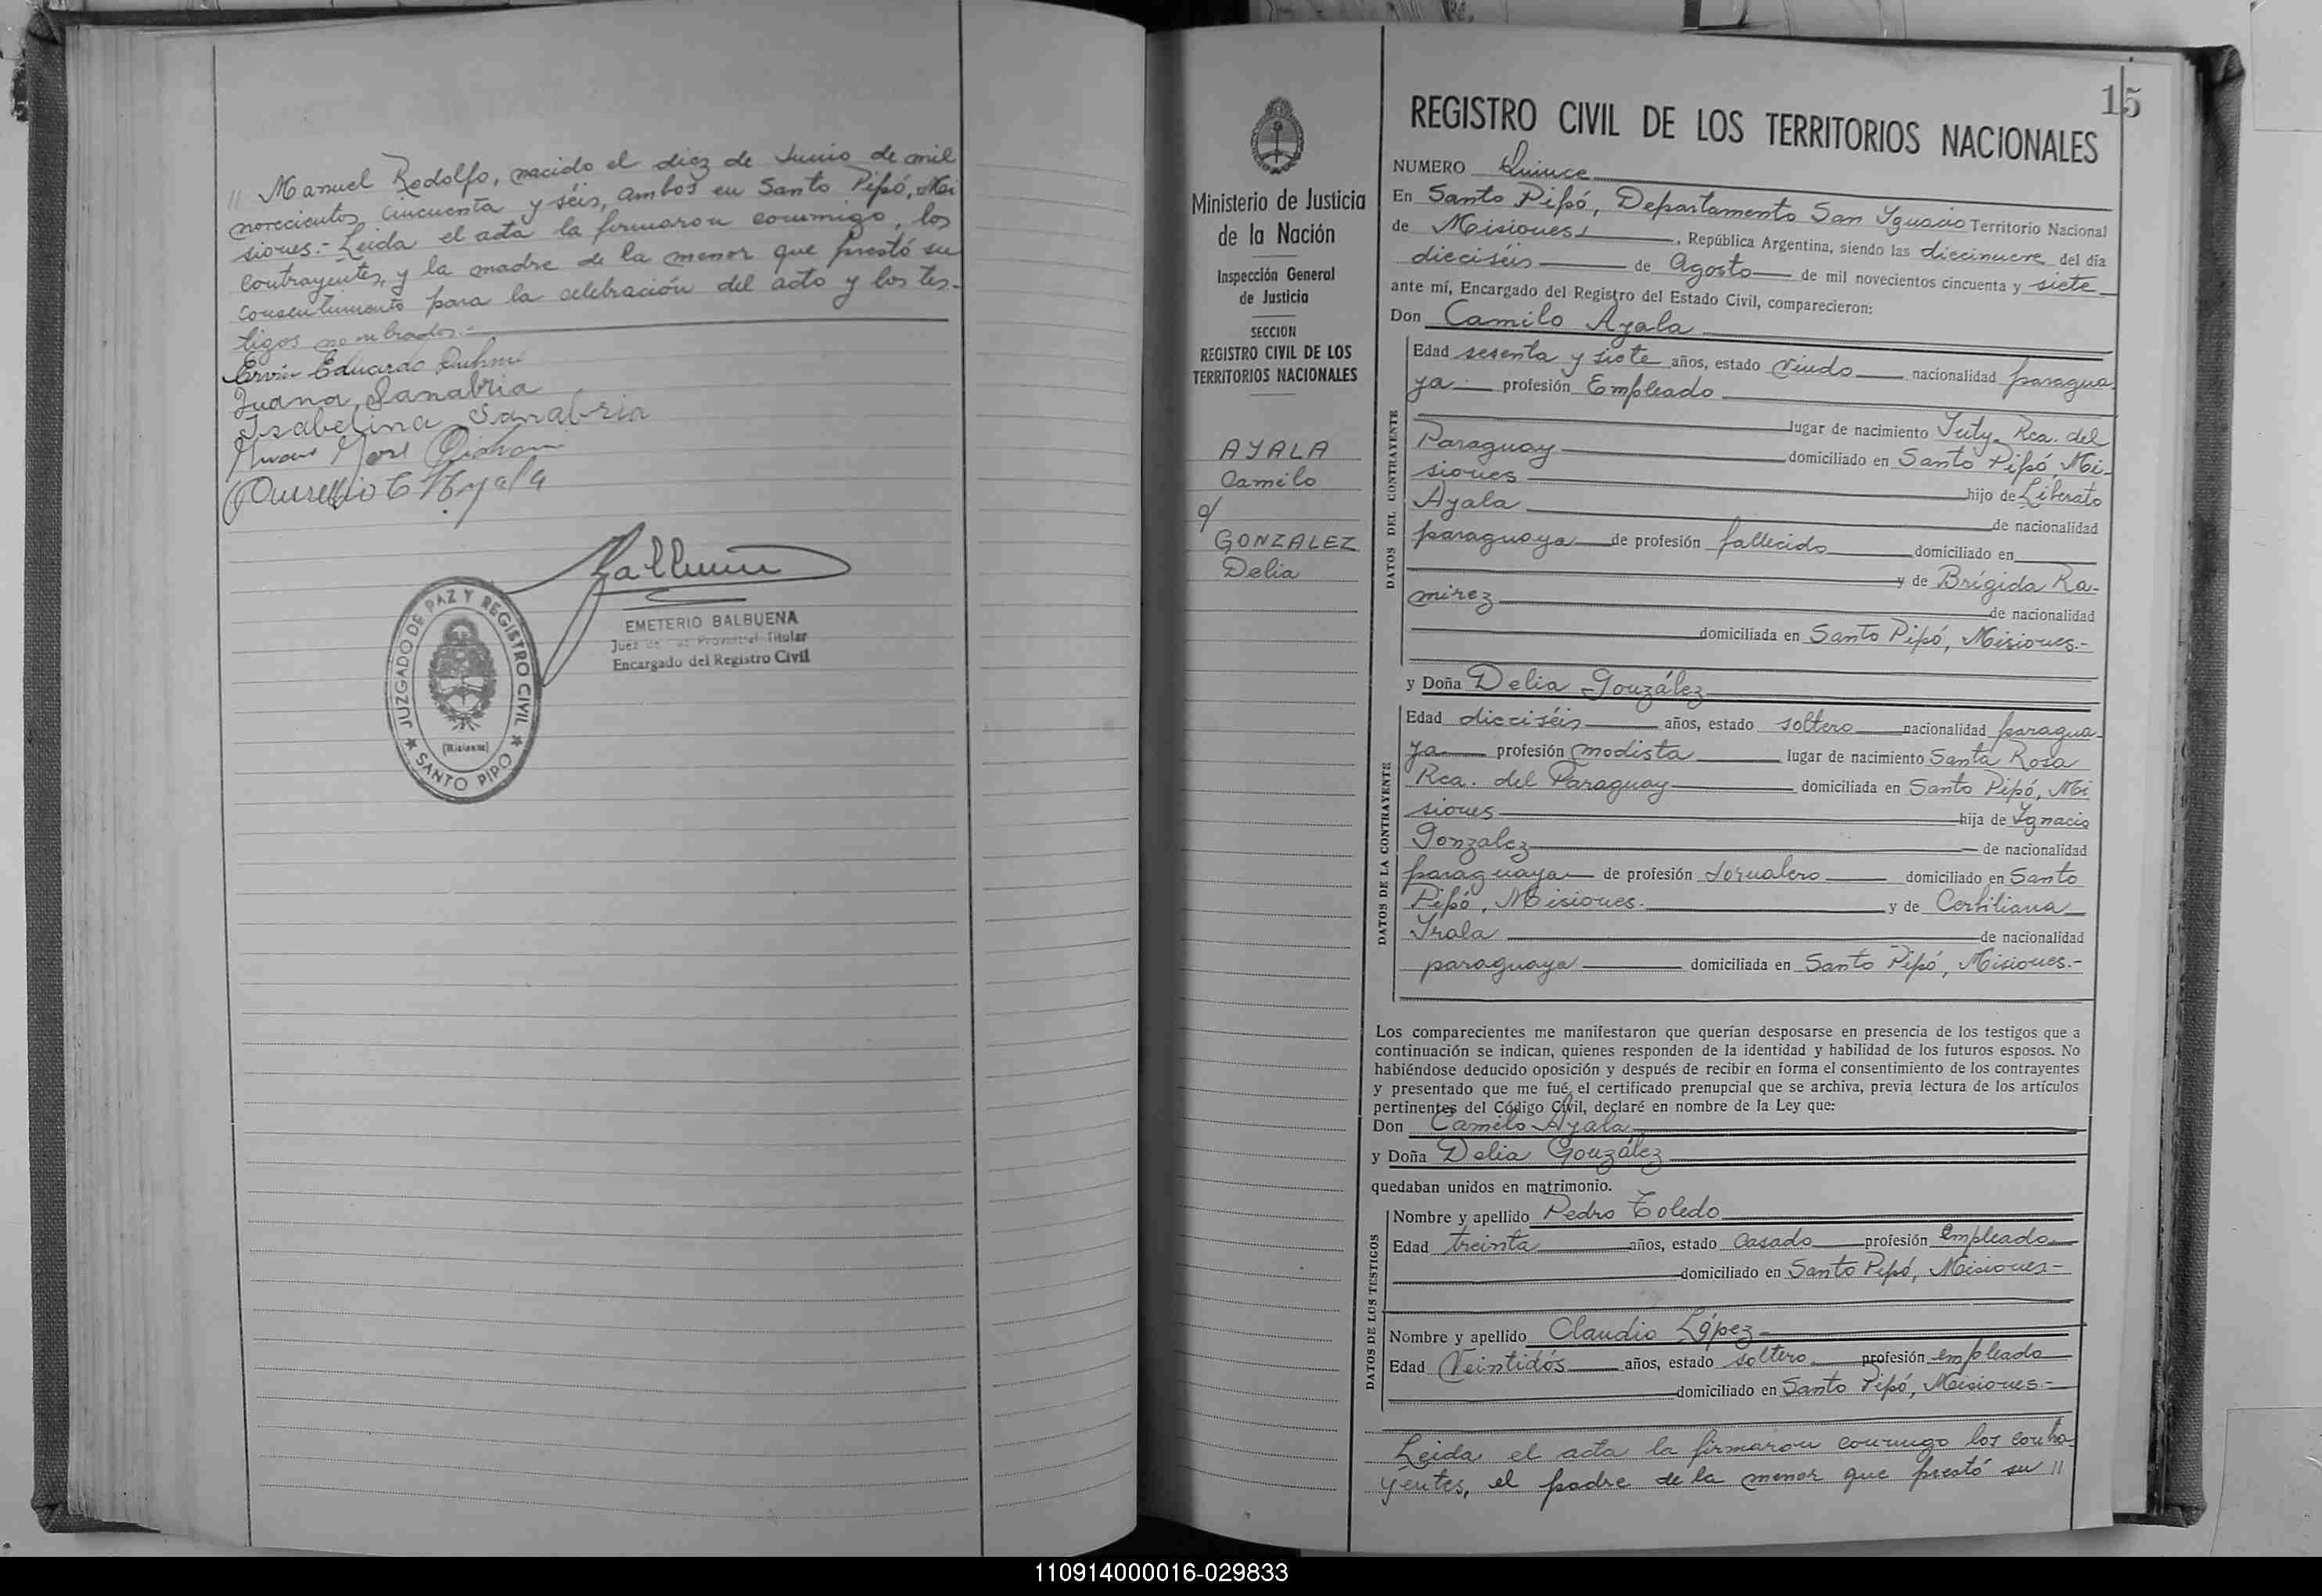 // Manuel Rodolfo, nacido el diez de Junio de mil
novecientos cincuenta y séis, ambos en Santo Pipó, Mi
siones.- Leida el acta la firmaron conmigo, los
contrayentes, y la madre de la menor que prestó su
consentimiento para la celebración del acto y los tes-
tigos nombrados.-
Ervin Eduardo
Juana Sanabria
Isabelina Sanabria
EMETERIO BALBUENA
Juez de Titular
Encargado del Registro Civil
JUZGADO DE PAZ Y REGISTRO CIVIL
(Misiones)
SANTO PIPO
15
Ministerio de Justicia
de la Nación
Inspección General
de Justicia
SECCION
REGISTRO CIVIL DE LOS
TERRITORIOS NACIONALES
AYALA
Camilo
c/
GONZALEZ
Delia
REGISTRO CIVIL DE LOS TERRITORIOS NACIONALES
NUMERO Quince
En Santo Pipó, Departamento San Ygnacio Territorio Nacional
de Misiones, República Argentina, siendo las diecinueve del día
dieciséis de Agosto de mil novecientos cincuenta y siete
ante mí, Encargado del Registro del Estado Civil, comparecieron:
Don Camilo Ayala
DATOS DEL CONTRAYENTE
Edad sesenta y siete años, estado viudo nacionalidad paragua
ya profesión Empleado
lugar de nacimiento Yuty, Rca. del
Paraguay domiciliado en Santo Pipó, Mi-
siones hijo de Liberato
Ayala de nacionalidad
paraguaya de profesión fallecido domiciliado en
y de Brígida Ra-
mirez de nacionalidad
domiciliada en Santo Pipó, Misiones.-
y Doña Delia González
DATOS DE LA CONTRAYENTE
Edad dieciséis años, estado soltero nacionalidad paragua-
ya profesión modista lugar de nacimiento Santa Rosa
Rca. del Paraguay domiciliada en Santo Pipó, Mi
siones hija de Ygnacio
Gonzalez de nacionalidad
paraguaya de profesión Jornalero domiciliado en Santo
Pipó, Misiones. y de Cerbiliana
Yrala de nacionalidad
paraguaya domiciliada en Santo Pipó, Misiones.-
Los comparecientes me manifestaron que querían desposarse en presencia de los testigos que a
continuación se indican, quienes responden de la identidad y habilidad de los futuros esposos. No
habiéndose deducido oposición y después de recibir en forma el consentimiento de los contrayentes
y presentado que me fué el certificado prenupcial que se archiva, previa lectura de los artículos
pertinentes del Código Civil, declaré en nombre de la Ley que:
Don Camilo Ayala
y Doña Delia González
quedaban unidos en matrimonio.
DATOS DE LOS TESTIGOS
Nombre y apellido Pedro Toledo
Edad treinta años, estado Casado profesión empleado
domiciliado en Santo Pipó, Misiones-
Nombre y apellido Claudio López
Edad Veintidós años, estado soltero profesión empleado
domiciliado en Santo Pipó, Misiones-
Leida el acta la firmaron conmigo los contra
yentes, el padre de la menor que prestó su //
110914000016-029833